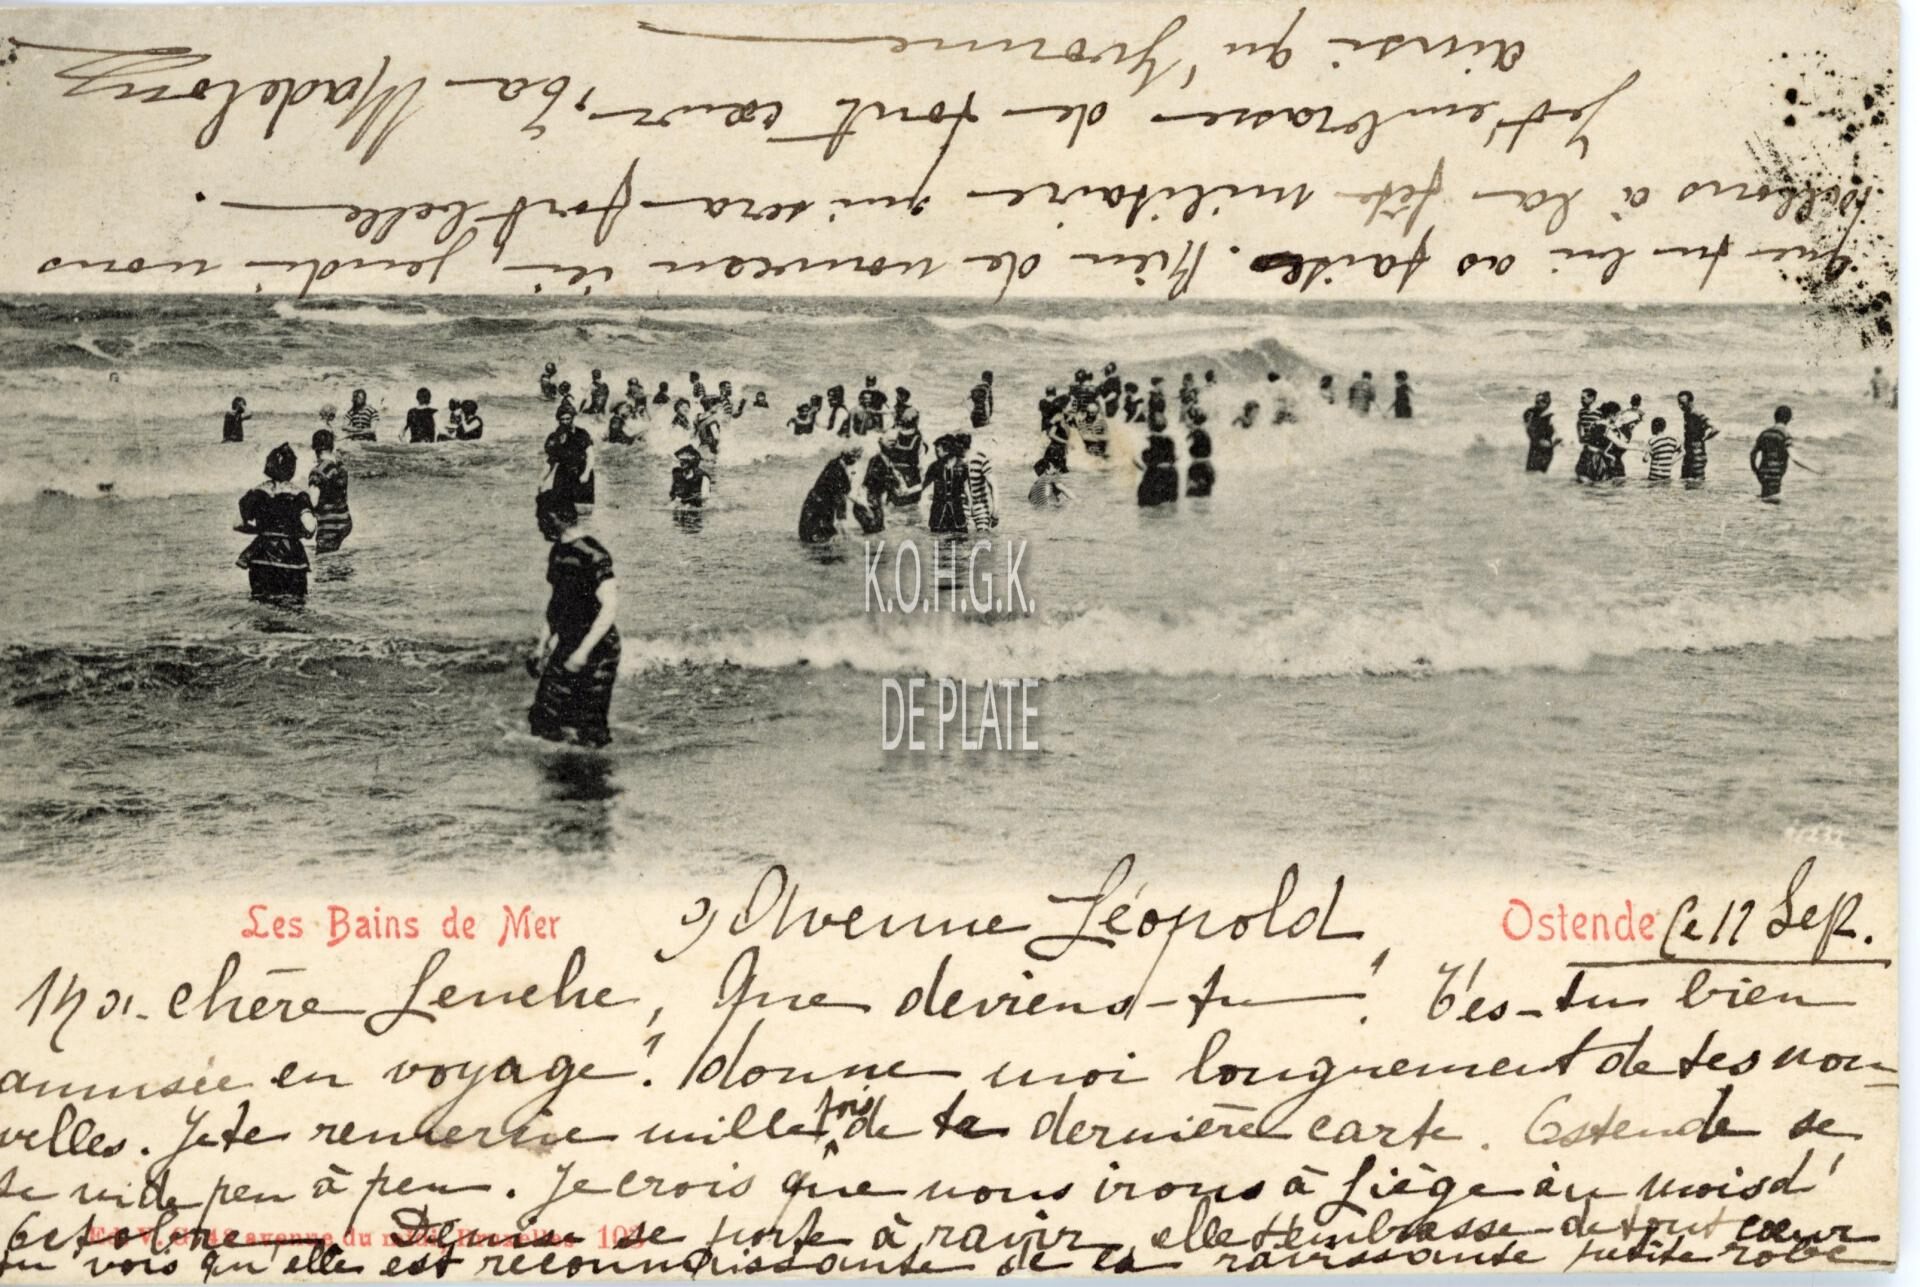 K.O.H.G.K.
DE PLATE
Les Bains de Mer
9 Avenue Léopold
Ostende le 12 Sep.
Ma chère Lenche, Que deviens-tu? T'es-tu bien
amusée en voyage? donne moi longuement de tes nou-
velles. Je te remercie mille fois de ta dernière carte. Ostende se
se vide peu à peu. Je crois que nous irons à Liège au mois d'
Octobre. Denise se porte à ravir elle t'embrasse de tout cœur
tu vois qu'elle est reconnaissante de la ravissante petite robe
Ed. V. G. 48 avenue du midi, Bruxelles 103
que tu lui as faites. Rien de nouveau ici, jeudi nous
allons à la fête militaire qui sera fort belle.
Je t'embrasse de tout cœur, Ta Madelon
ainsi qu'Yvonne